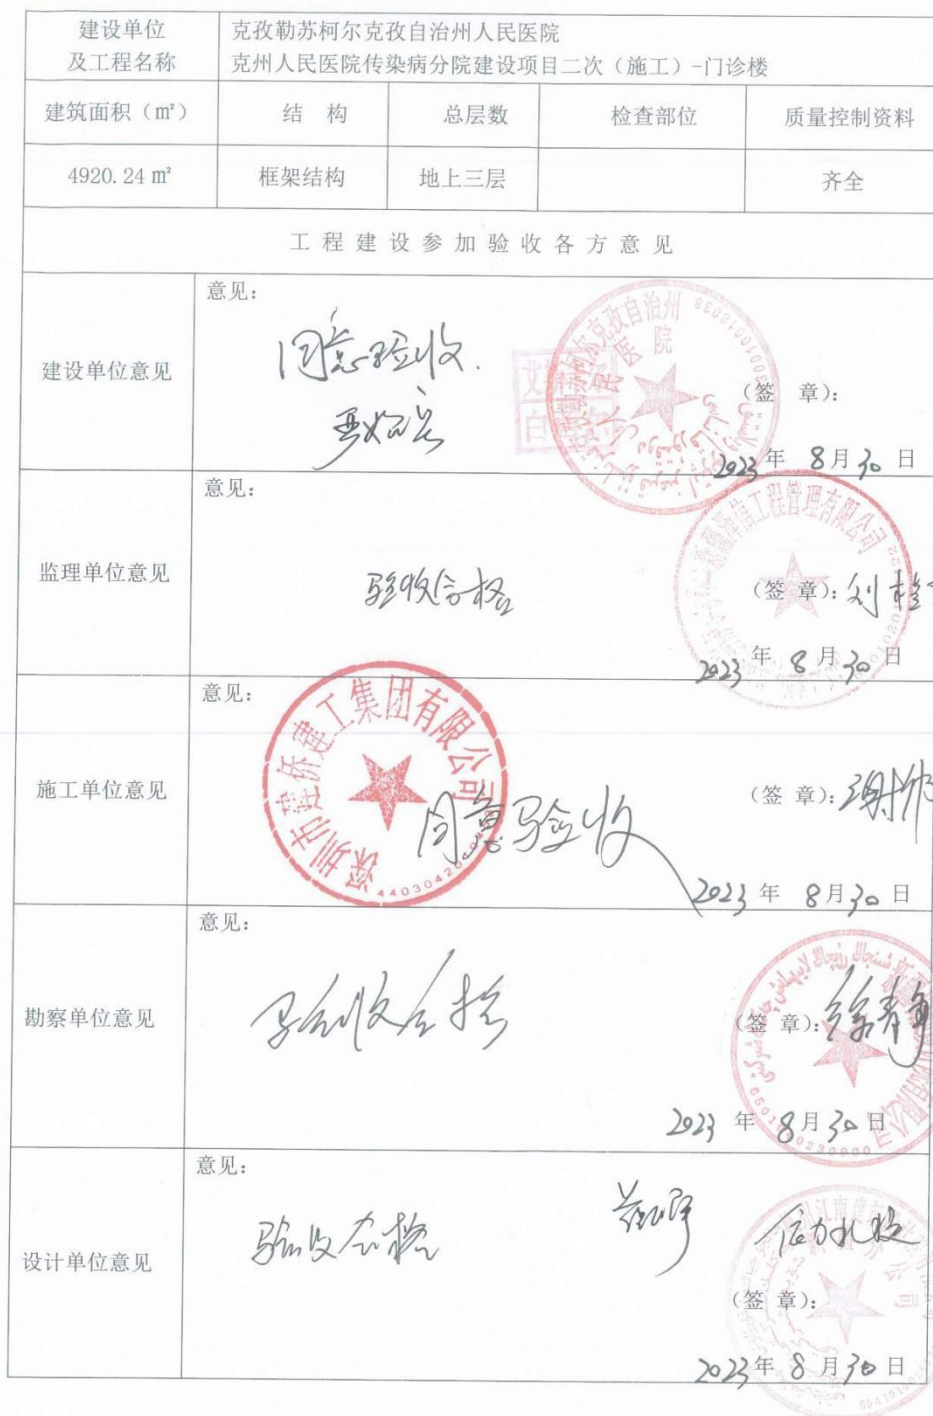 建设单位
及工程名称
克孜勒苏柯尔克孜自治州人民医院
克州人民医院传染病分院建设项目二次（施工）-门诊楼
建筑面积（㎡） 结 构 总层数 检查部位 质量控制资料
4920.24㎡ 框架结构 地上三层 齐全
工程建设参加验收各方意见
建设单位意见
意见：
同意验收.
克孜勒苏柯尔克孜自治州
人民医院
（签 章）：
2023年 8月30日
监理单位意见
意见：
验收合格
工程管理有限公司
（签 章）：
2023年 8月30日
施工单位意见
意见：
深圳市建侨建工集团有限公司
同意验收
（签 章）：
2023年 8月30日
勘察单位意见
意见：
验收合格
（签 章）：徐青
2023年 8月30日
设计单位意见
意见：
验收合格
（签 章）：
2023年 8月30日